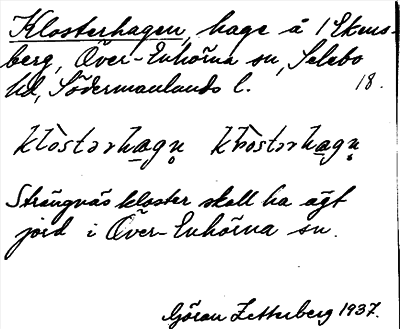 Klosterhagen, hage å 1 Ekens-
berg, Över-Enhörna sn, Selebo
hd, Södermanlands l. 18.
klòstərhagn̥ klòstərhagn̥
Strängnäs kloster skall ha ägt
jord i Över-Enhörna sn.
Göran Zetterberg 1937.